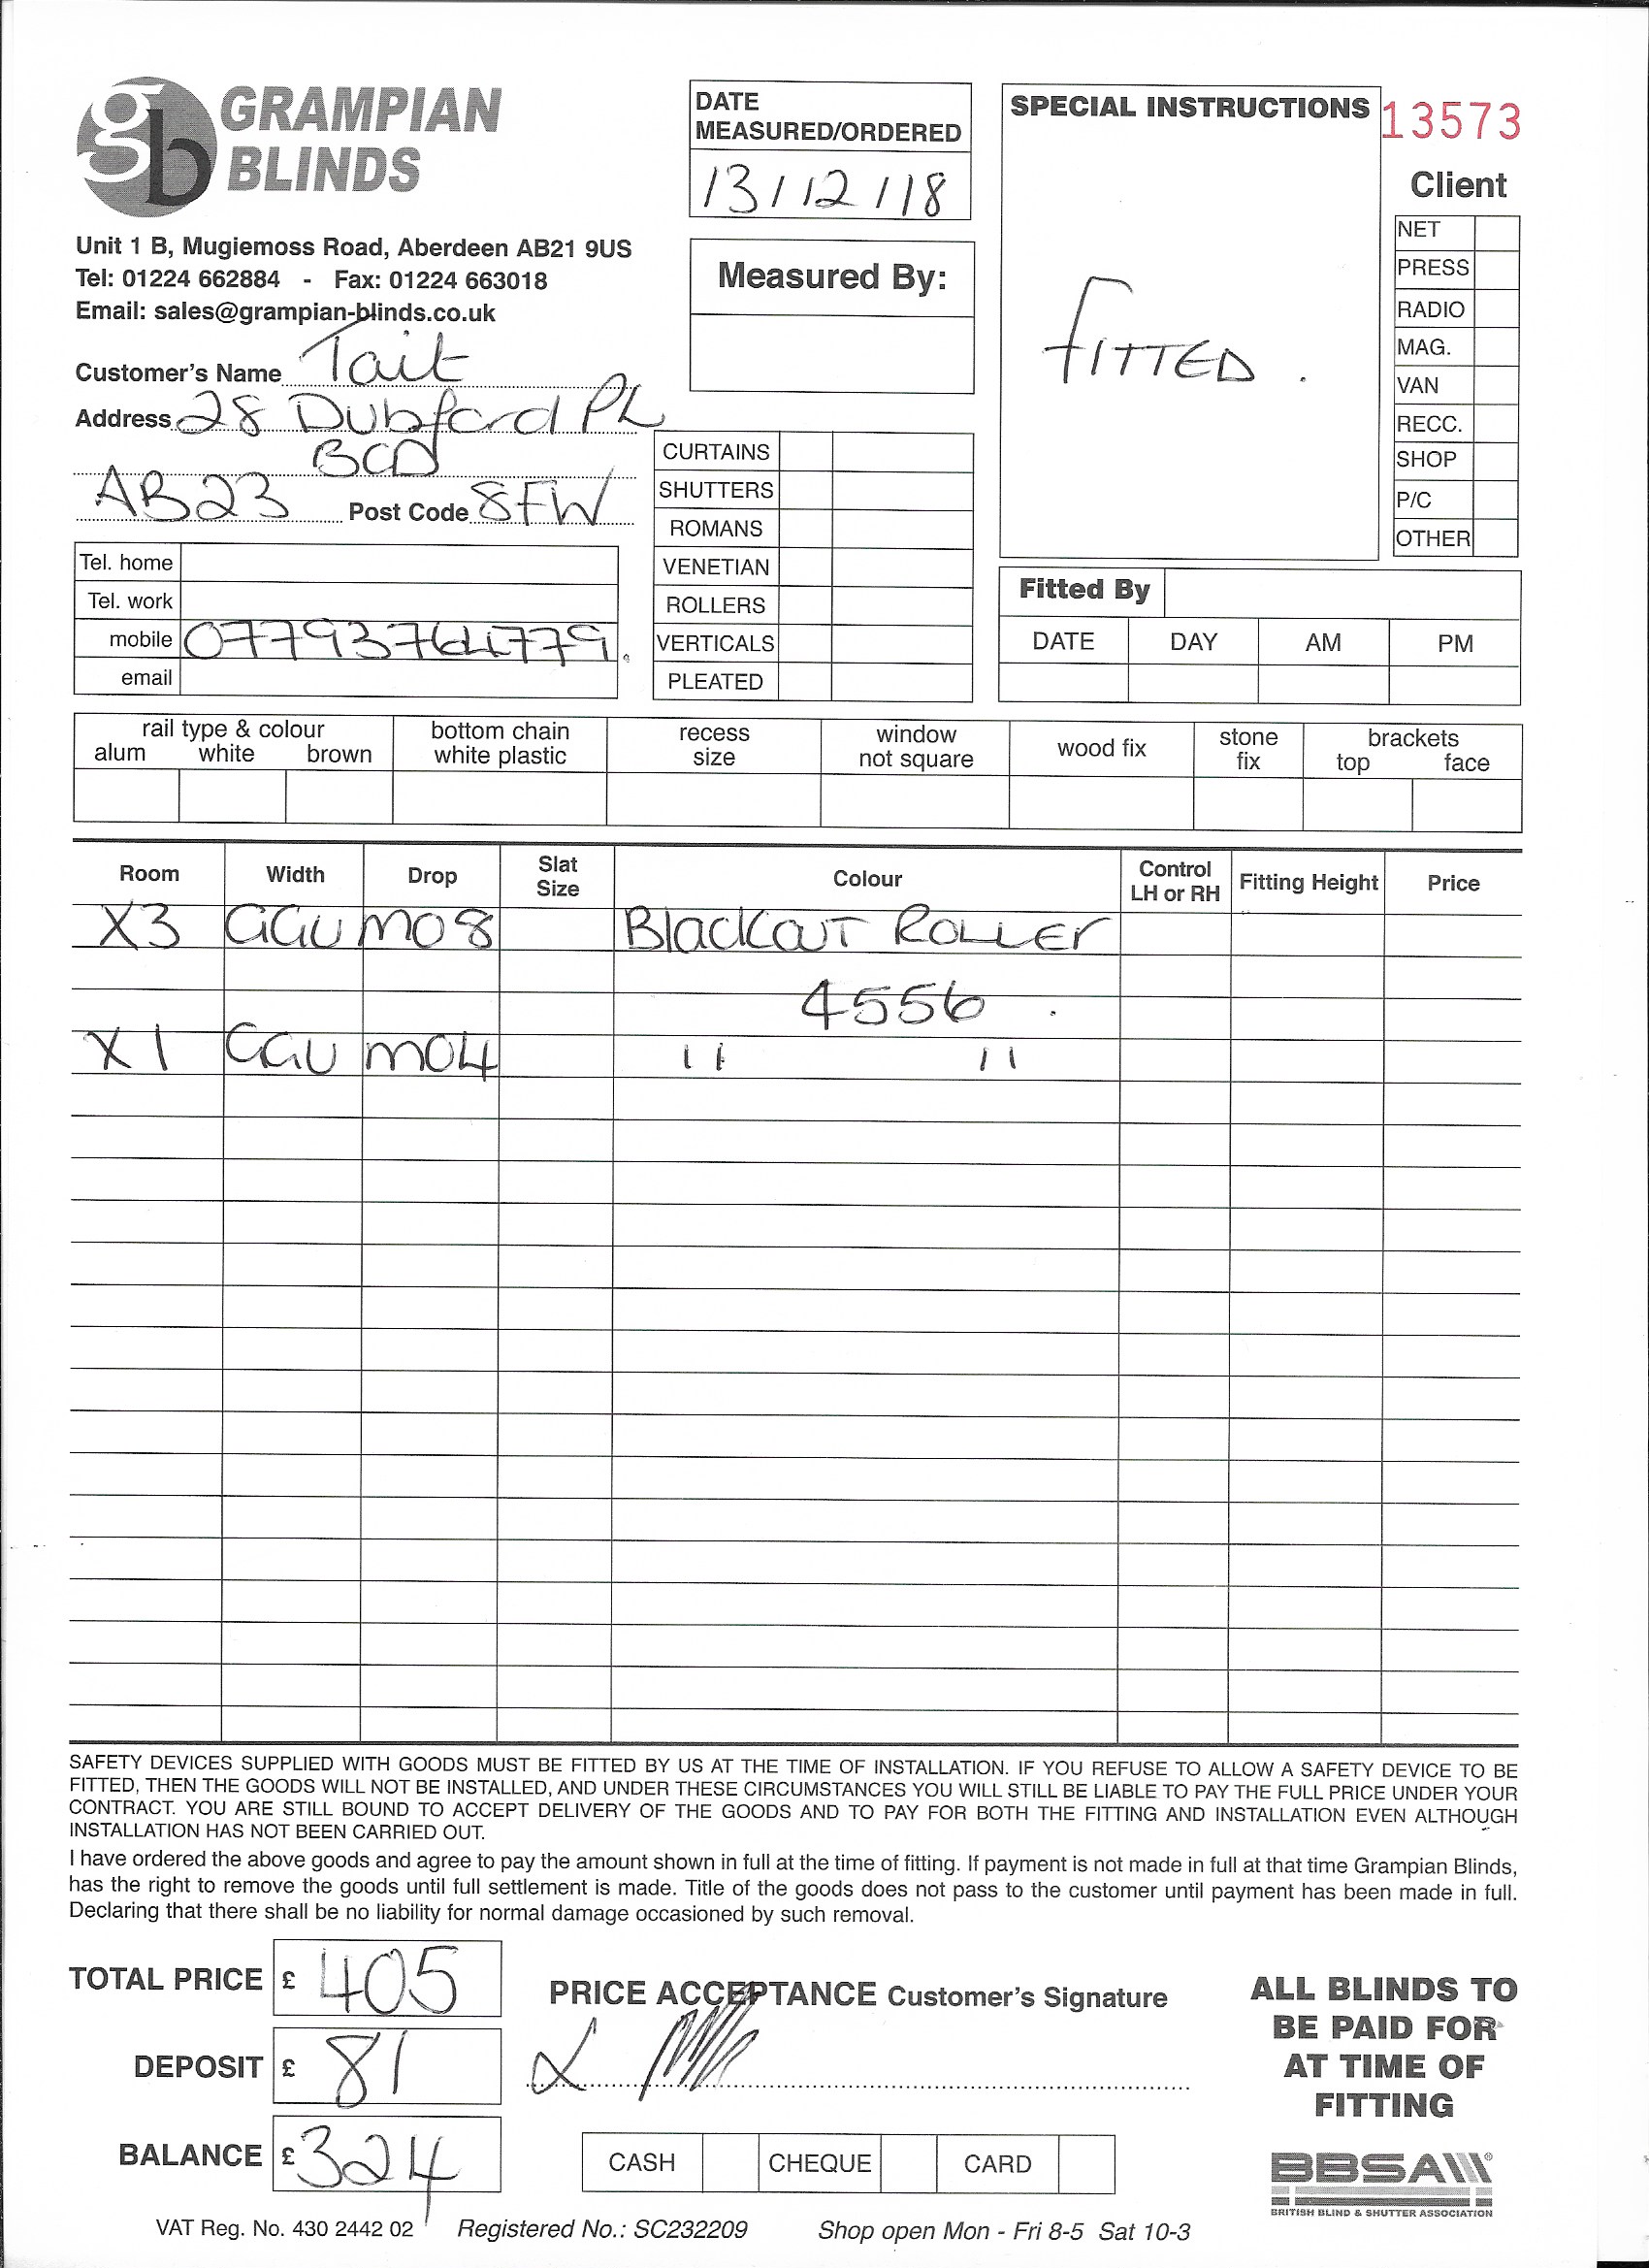 gb GRAMPIAN
BLINDS
Unit 1 B, Mugiemoss Road, Aberdeen AB21 9US
Tel: 01224 662884 - Fax: 01224 663018
Email: sales@grampian-blinds.co.uk
DATE
MEASURED/ORDERED
13/12/18
Measured By:
SPECIAL INSTRUCTIONS
FITTED.
13573
Client
NET
PRESS
RADIO
MAG.
VAN
RECC.
SHOP
P/C
OTHER
Customer's Name Tait
Address 28 Dubford PL
BOD
AB23 Post Code 8FW
Tel. home
Tel. work
mobile 07793764779.
email
CURTAINS
SHUTTERS
ROMANS
VENETIAN
ROLLERS
VERTICALS
PLEATED
Fitted By
DATE DAY AM PM
rail type & colour
alum white brown
bottom chain
white plastic
recess
size
window
not square
wood fix
stone
fix
brackets
top face
Room Width Drop Slat Size Colour Control LH or RH Fitting Height Price
X3 GGU M08 Blackout ROLLEr
4556.
X1 GGU M04 " "
SAFETY DEVICES SUPPLIED WITH GOODS MUST BE FITTED BY US AT THE TIME OF INSTALLATION. IF YOU REFUSE TO ALLOW A SAFETY DEVICE TO BE
FITTED, THEN THE GOODS WILL NOT BE INSTALLED, AND UNDER THESE CIRCUMSTANCES YOU WILL STILL BE LIABLE TO PAY THE FULL PRICE UNDER YOUR
CONTRACT. YOU ARE STILL BOUND TO ACCEPT DELIVERY OF THE GOODS AND TO PAY FOR BOTH THE FITTING AND INSTALLATION EVEN ALTHOUGH
INSTALLATION HAS NOT BEEN CARRIED OUT.
I have ordered the above goods and agree to pay the amount shown in full at the time of fitting. If payment is not made in full at that time Grampian Blinds,
has the right to remove the goods until full settlement is made. Title of the goods does not pass to the customer until payment has been made in full.
Declaring that there shall be no liability for normal damage occasioned by such removal.
TOTAL PRICE £ 405
DEPOSIT £ 81
BALANCE £ 324
PRICE ACCEPTANCE Customer's Signature
X
CASH CHEQUE CARD
ALL BLINDS TO
BE PAID FOR
AT TIME OF
FITTING
BBSA ®
BRITISH BLIND & SHUTTER ASSOCIATION
VAT Reg. No. 430 2442 02 Registered No.: SC232209 Shop open Mon - Fri 8-5 Sat 10-3